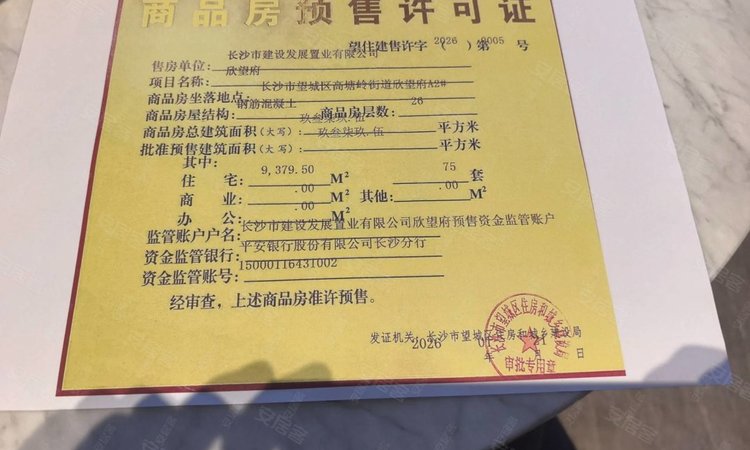 商品房预售许可证
望住建售许字(2026)第0005号
售房单位:长沙市建设发展置业有限公司
项目名称:欣望府
商品房坐落地点:长沙市望城区高塘岭街道欣望府A2#
商品房屋结构:钢筋混凝土 商品房层数:26
商品房总建筑面积(大写):玖叁柒玖.伍 平方米
批准预售建筑面积(大写):玖叁柒玖.伍 平方米
其中:
住宅:9,379.50 M² 75 套
商业:.00 M² 其他:.00 M²
办公:.00 M²
监管账户户名:长沙市建设发展置业有限公司欣望府预售资金监管账户
资金监管银行:平安银行股份有限公司长沙分行
资金监管账号:15000116431002
经审查,上述商品房准许预售。
发证机关:长沙市望城区住房和城乡建设局
2026年 月21日
长沙市望城区住房和城乡建设局
审批专用章
安居客